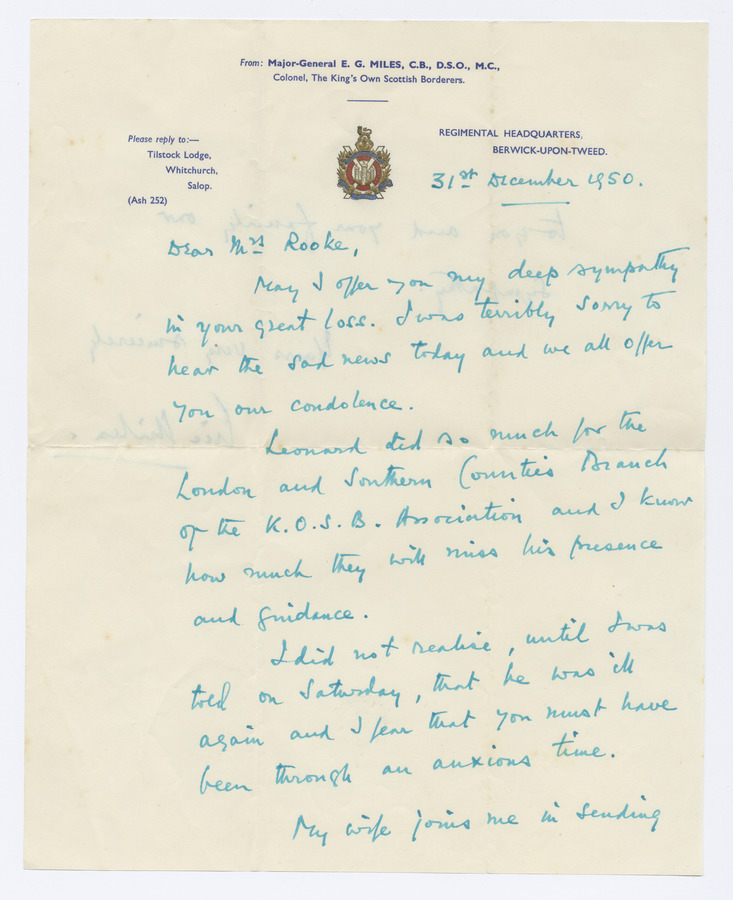 From: Major-General E. G. MILES, C.B., D.S.O., M.C.,
Colonel, The King's Own Scottish Borderers.
Please reply to:—
Tilstock Lodge,
Whitchurch,
Salop.
(Ash 252)
REGIMENTAL HEADQUARTERS,
BERWICK-UPON-TWEED.
31st December 1950.
Dear Mrs Rooke,
May I offer you my deep sympathy
in your great loss. I was terribly sorry to
hear the sad news today and we all offer
you our condolence.
Leonard did so much for the
London and Southern Counties Branch
of the K.O.S.B. Association and I know
how much they will miss his presence
and guidance.
I did not realise, until I was
told on Saturday, that he was ill
again and I fear that you must have
been through an anxious time.
My wife joins me in sending